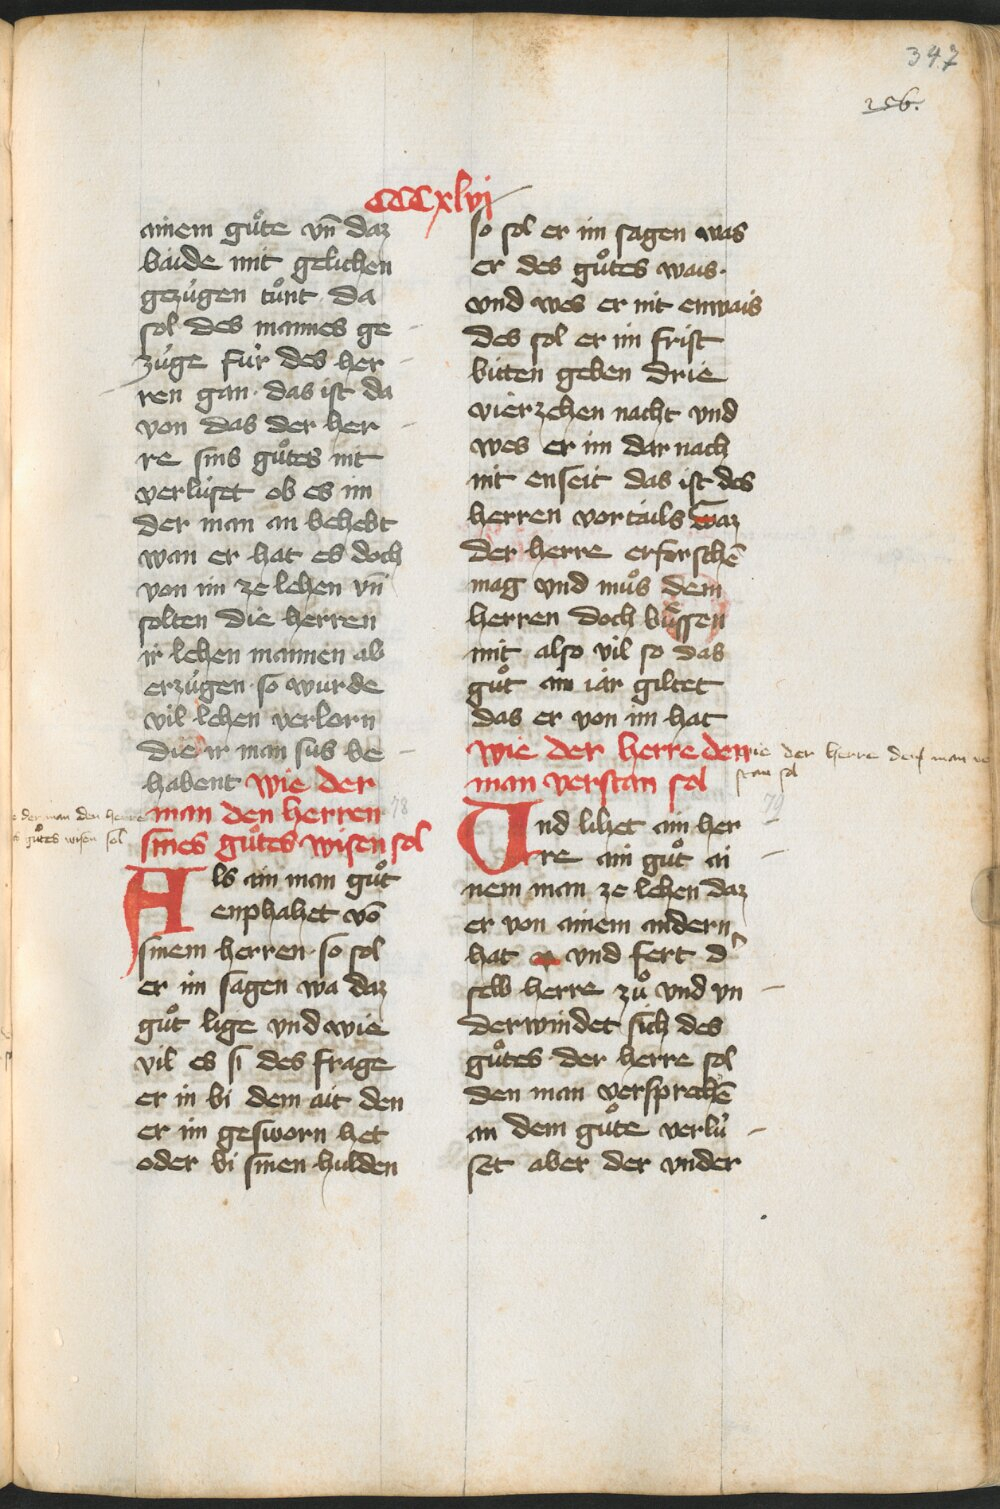 347
256.
CCCxlvj
ainem guͦte vn̄ daz
baide mit gelichen
gezúgen tuͦnt da
sol des mannes ge
zúge fúr des her
ren gan · das ist da
von das der her
re sins guͦtes nit
verlúset ob es im
der man an behebt
wan er hat es doch
von im ze lehen vn̄
solten die herren
ir lehen mannen ab
erzúgen · so wurde
vil lehen verlorn
die ir man sus be
habent wie der
man den herren
sines guͦtes wisen sol
78
der man den herre
guͦtes wisen sol
Als ain man guͦt
enphahet vō
sinem herren · so sol
er im sagen wa daz
guͦt lige vnd wie
vil es si des frage
er in bi dem ait den
er im gesworn het
oder bi sinen hulden
so sol er im sagen was
er des guͦtes wais ·
vnd wes er nit enwais
des sol er im frist
bitten geben drie
vierzehen nacht vnd
wes er im dar nach
nit enseit das ist des
herren vortails waz
der herre erforschē
mag vnd muͦs dem
herren doch buͤssen
mit also vil so das
guͦt ain iar giltet
das er von im hat
wie der herre den
man verstan sol
wie der herre den man ve
stan sol
79
Und lihet ain her
re ain guͦt ai
nem man ze lehen daz
er von ainem andern
hat vnd fert d
selb herre zuͦ vnd vn
derwindet sich des
guͦtes · der herre sol
den man versprechē
an dem guͦte verlú
set aber der vnder